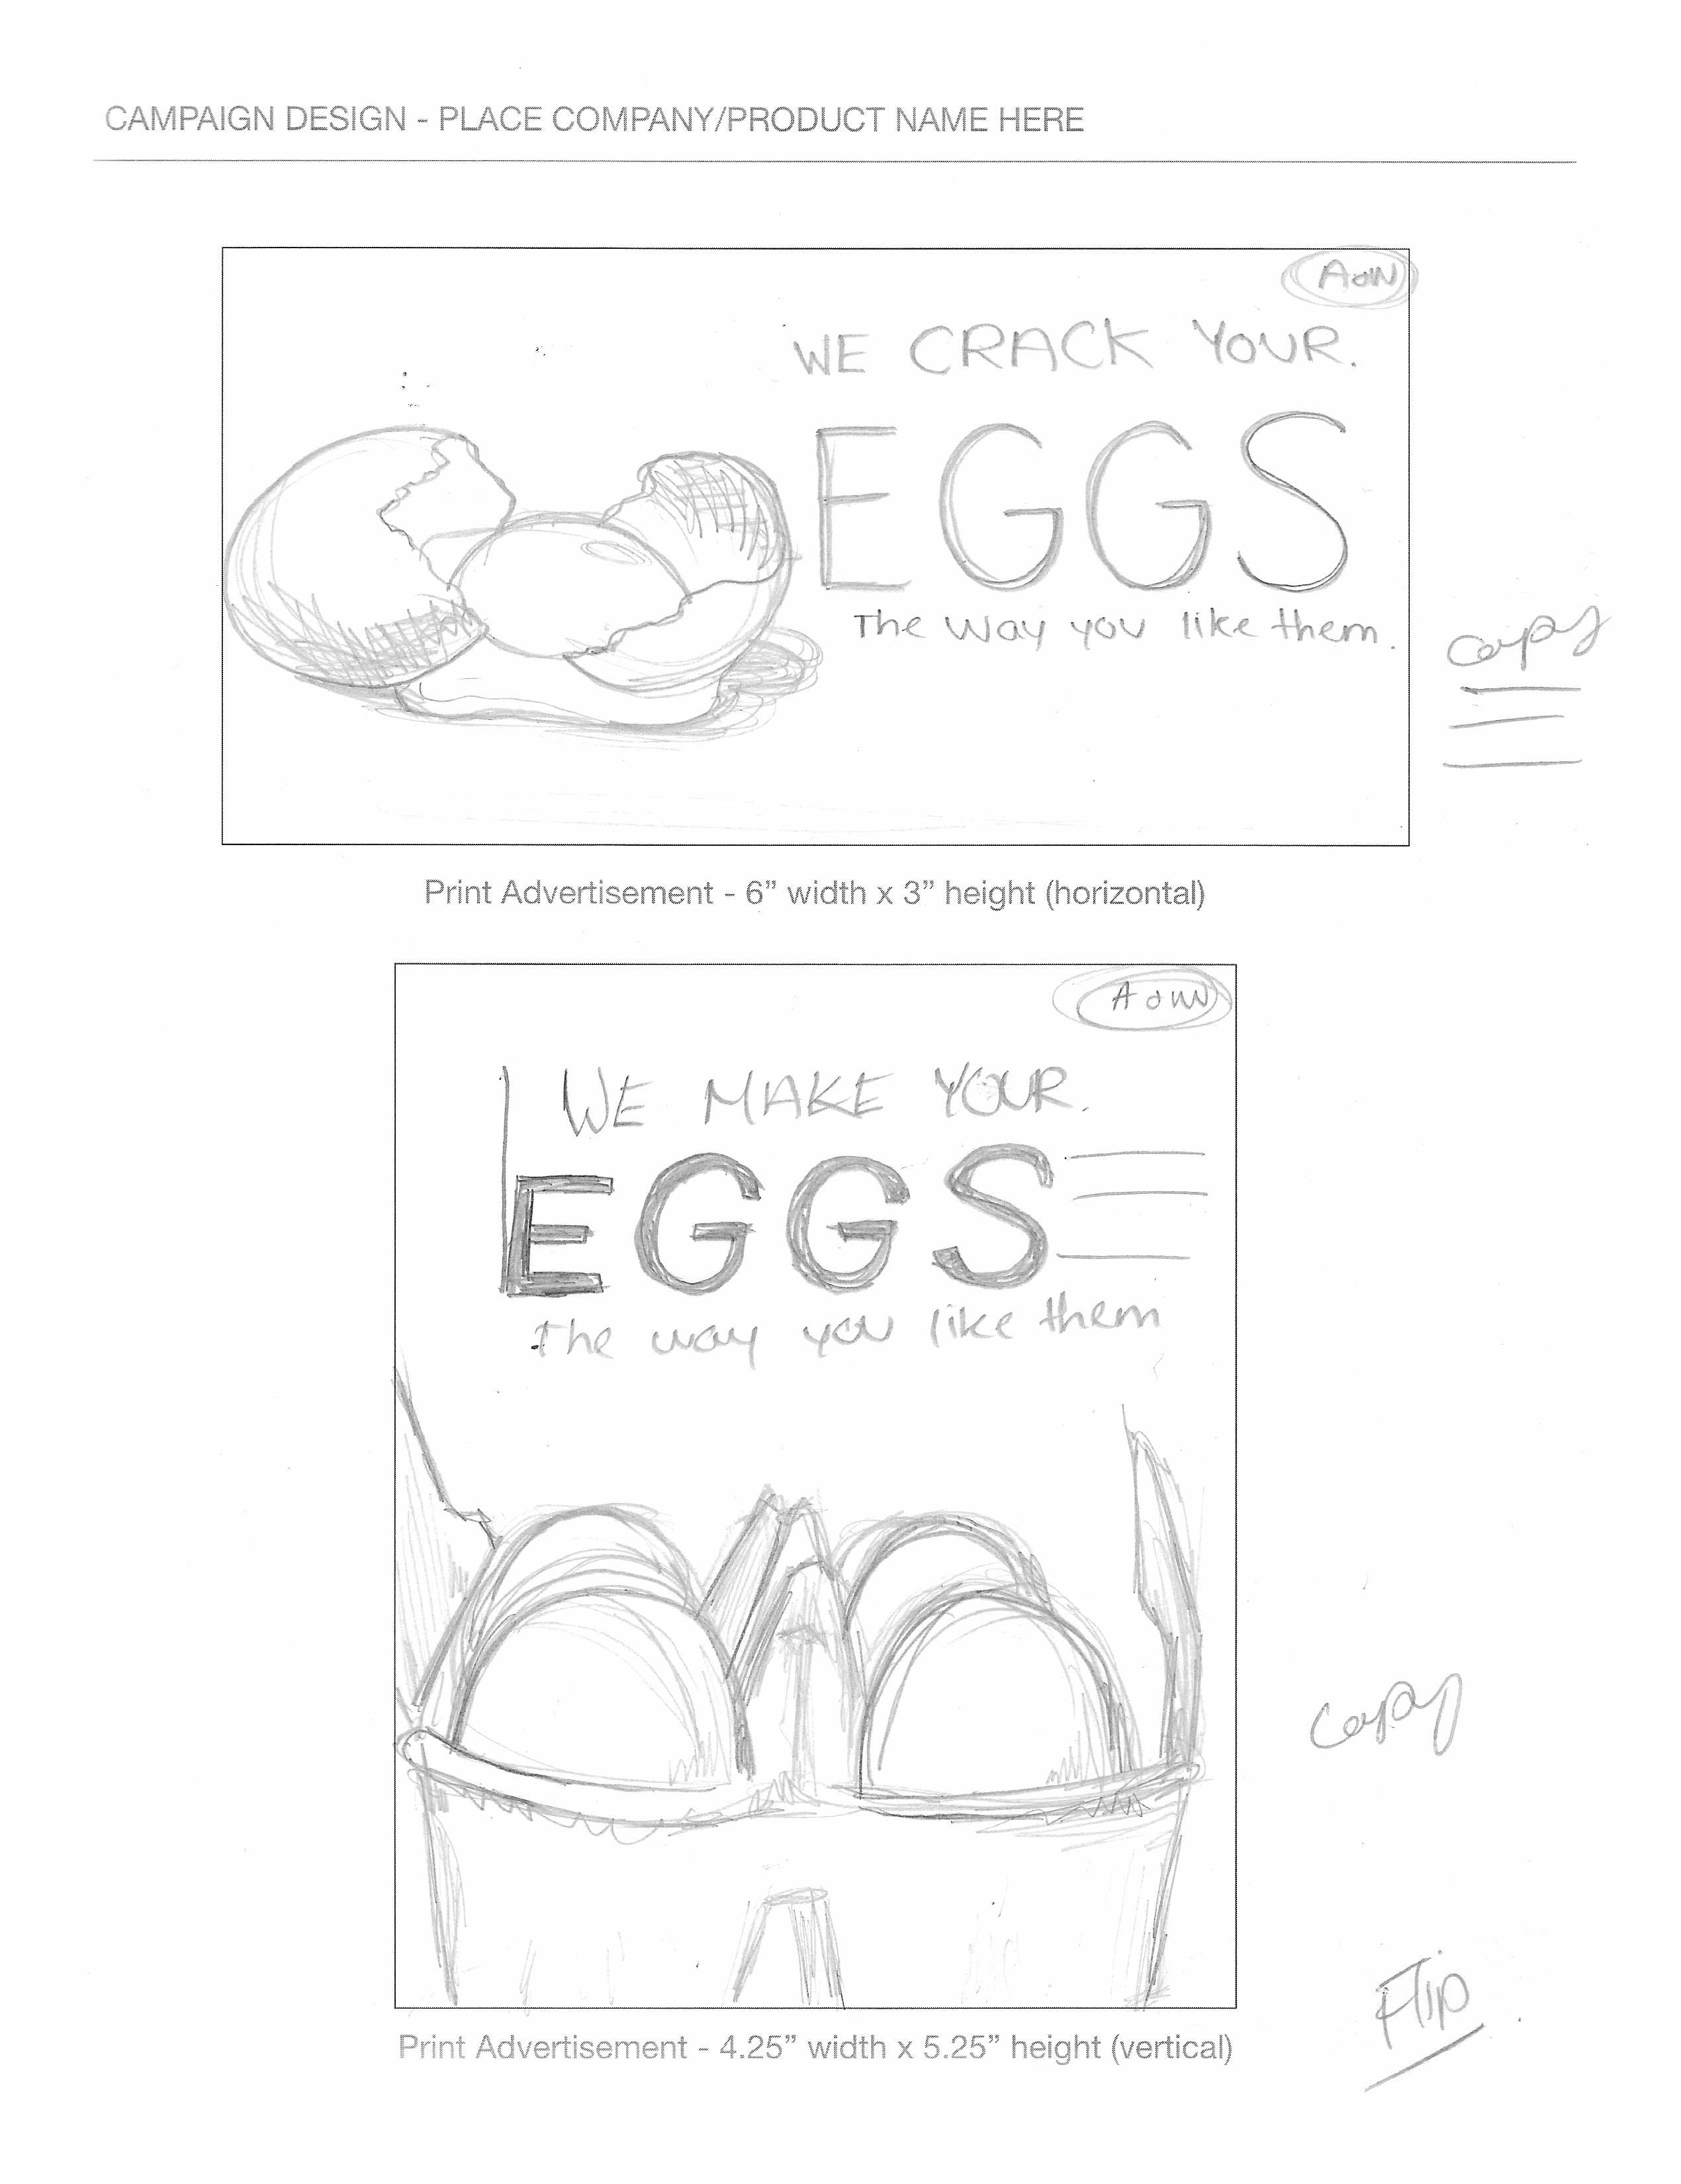 CAMPAIGN DESIGN - PLACE COMPANY/PRODUCT NAME HERE
WE CRACK YOUR.
EGGS
The way you like them.
Copy
Print Advertisement - 6” width x 3” height (horizontal)
WE MAKE YOUR.
EGGS
The way you like them
Copy
Flip
Print Advertisement - 4.25” width x 5.25” height (vertical)